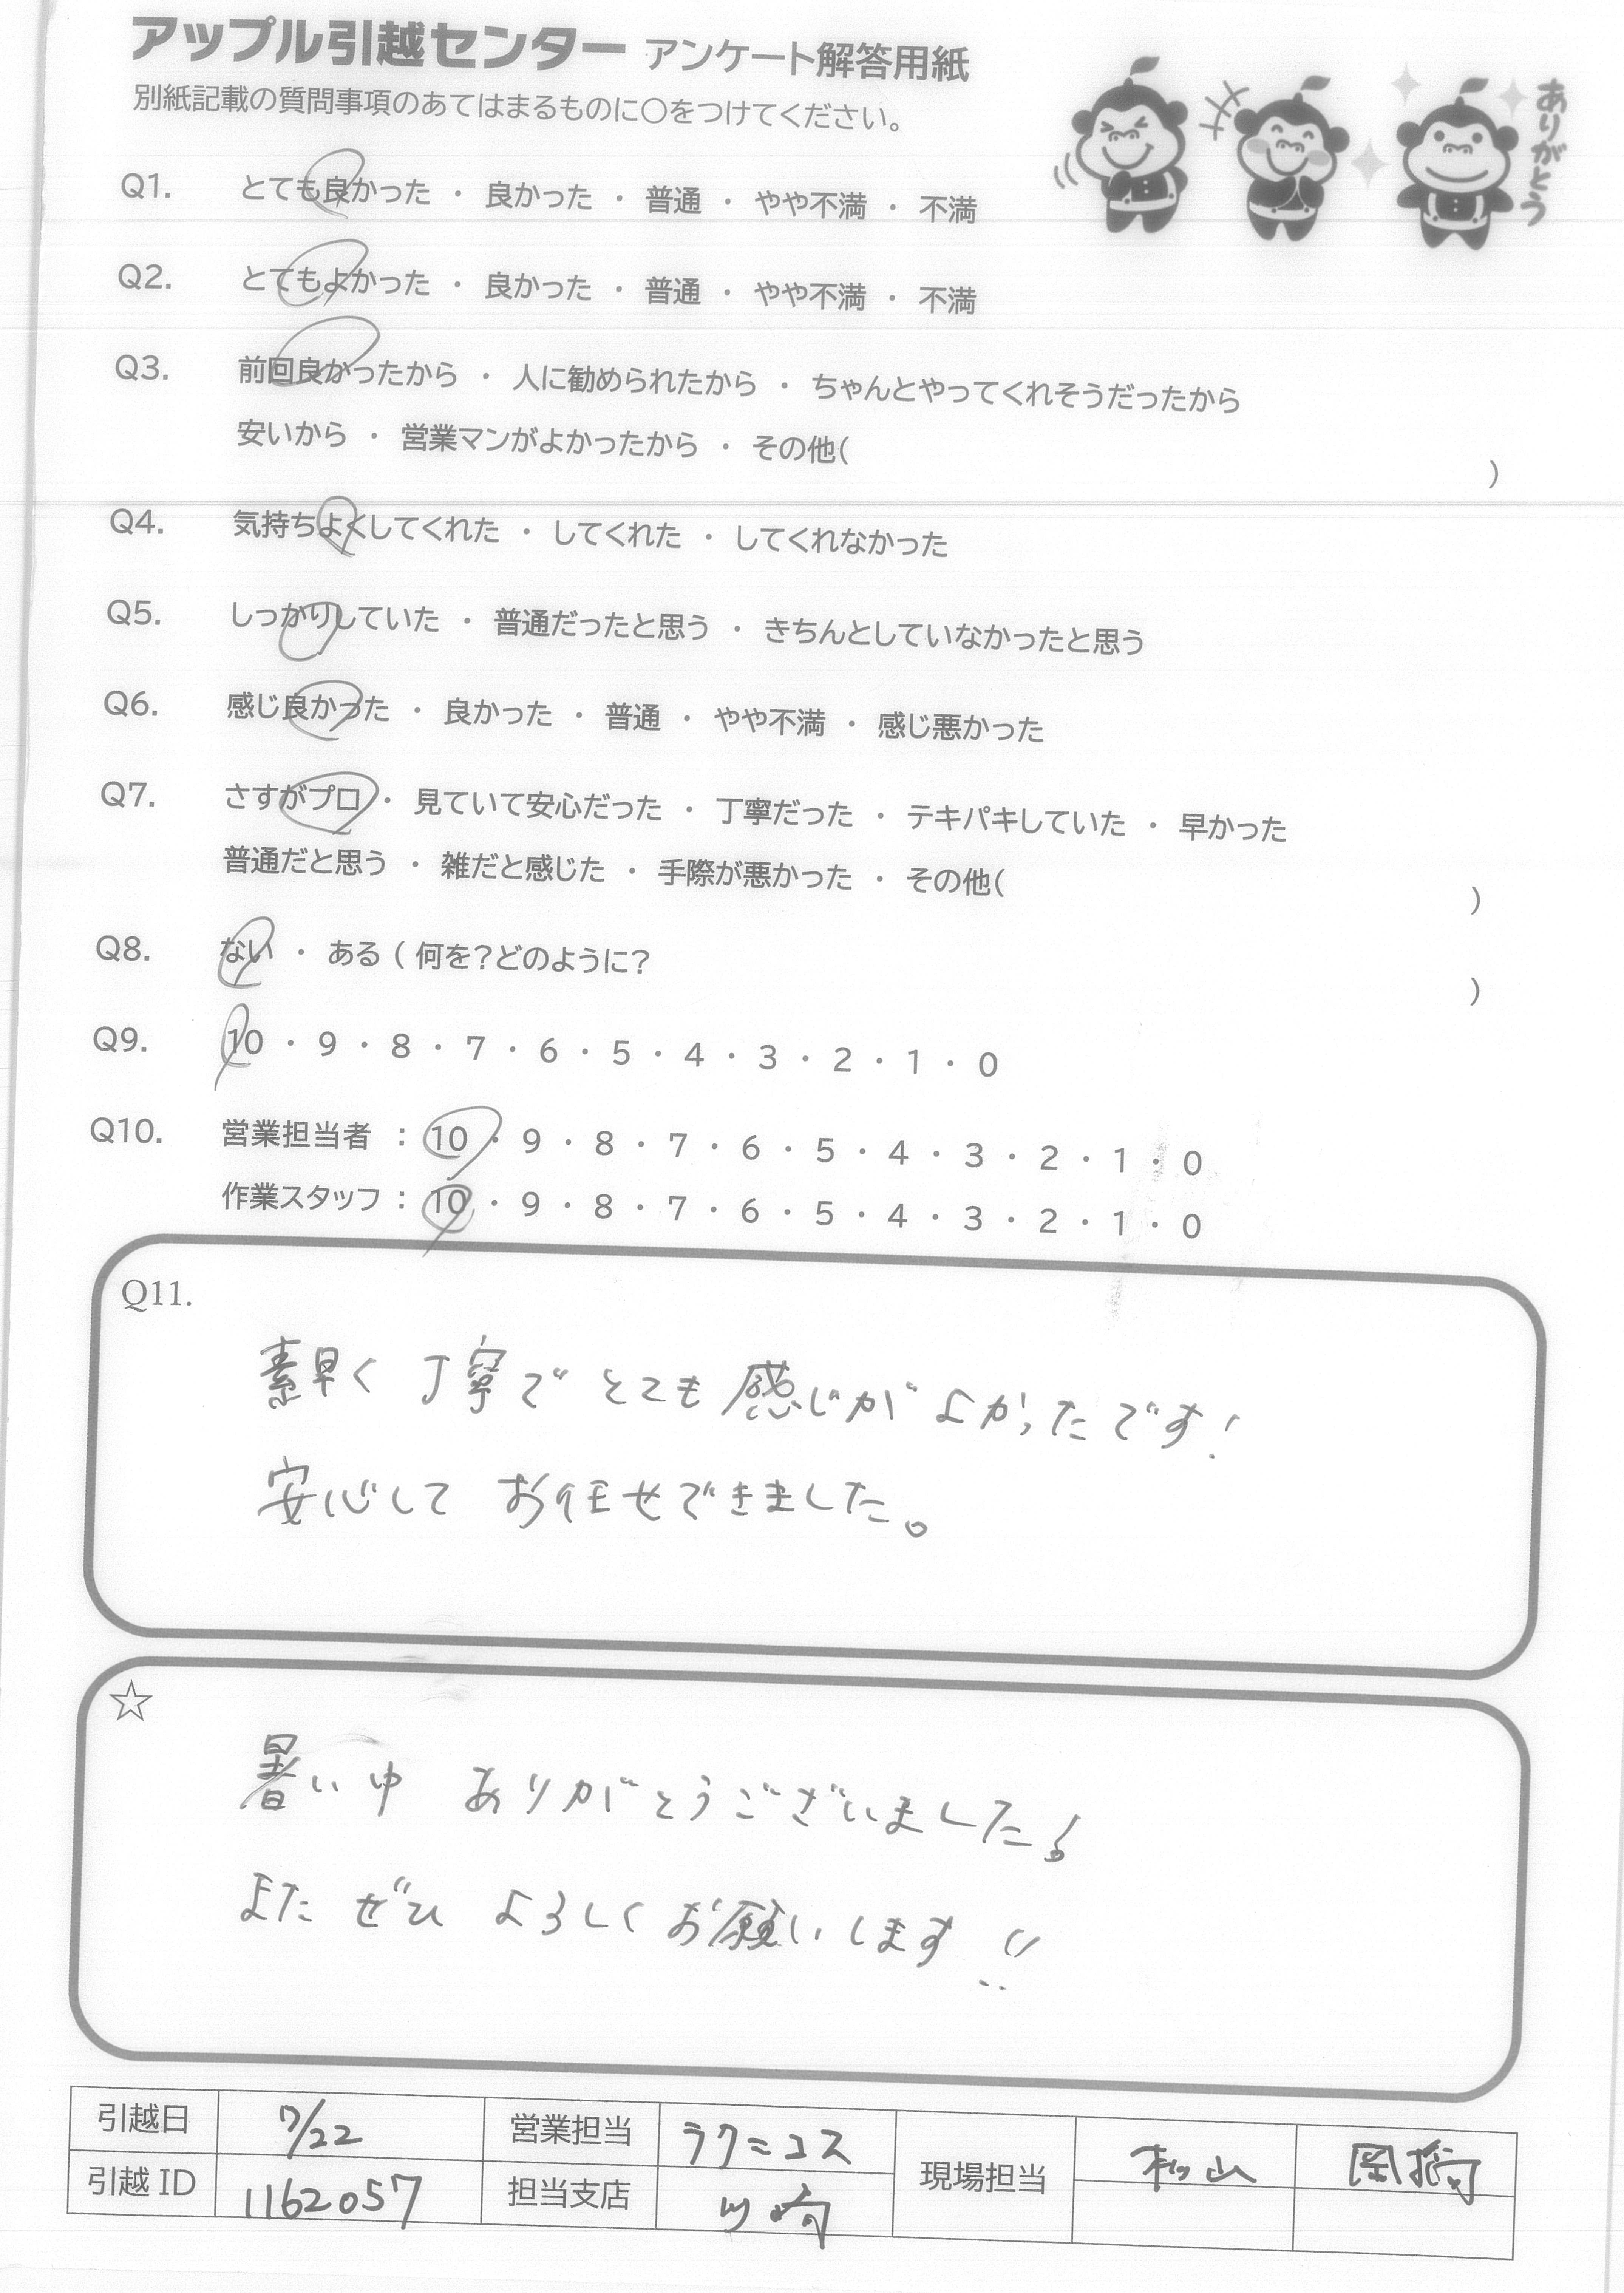 アップル引越センター アンケート解答用紙
別紙記載の質問事項のあてはまるものに○をつけてください。
ありがとう
Q1. とても良かった ・ 良かった ・ 普通 ・ やや不満 ・ 不満
Q2. とてもよかった ・ 良かった ・ 普通 ・ やや不満 ・ 不満
Q3. 前回良かったから ・ 人に勧められたから ・ ちゃんとやってくれそうだったから
安いから ・ 営業マンがよかったから ・ その他( )
Q4. 気持ちよくしてくれた ・ してくれた ・ してくれなかった
Q5. しっかりしていた ・ 普通だったと思う ・ きちんとしていなかったと思う
Q6. 感じ良かった ・ 良かった ・ 普通 ・ やや不満 ・ 感じ悪かった
Q7. さすがプロ ・ 見ていて安心だった ・ 丁寧だった ・ テキパキしていた ・ 早かった
普通だと思う ・ 雑だと感じた ・ 手際が悪かった ・ その他( )
Q8. ない ・ ある ( 何を?どのように? )
Q9. 10 ・ 9 ・ 8 ・ 7 ・ 6 ・ 5 ・ 4 ・ 3 ・ 2 ・ 1 ・ 0
Q10. 営業担当者 : 10 ・ 9 ・ 8 ・ 7 ・ 6 ・ 5 ・ 4 ・ 3 ・ 2 ・ 1 ・ 0
作業スタッフ : 10 ・ 9 ・ 8 ・ 7 ・ 6 ・ 5 ・ 4 ・ 3 ・ 2 ・ 1 ・ 0
Q11.
素早く 丁寧で とても 感じが よかったです!
安心して お任せできました。
☆
暑い中 ありがとうございました!
また ぜひ よろしく お願いします!!
引越日 7/22 営業担当 ラクニコス 現場担当 松山
引越 ID 1162057 担当支店 川崎